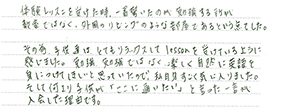 体験レッスンを受けた時、一番驚いたのが勉強する所が
教室ではなく、外国のリビングのような部屋であるという点でした。
その為、子供達はとてもリラックスして lessonを受けている上うに
感じました。勉強、勉強ではなく、楽しく自然に英語を
身につけてほしいと思っていたので、私自身すごく気に入りました。
そして何より子供が"ここに通いたい"と言った一言が
入会した理由です。